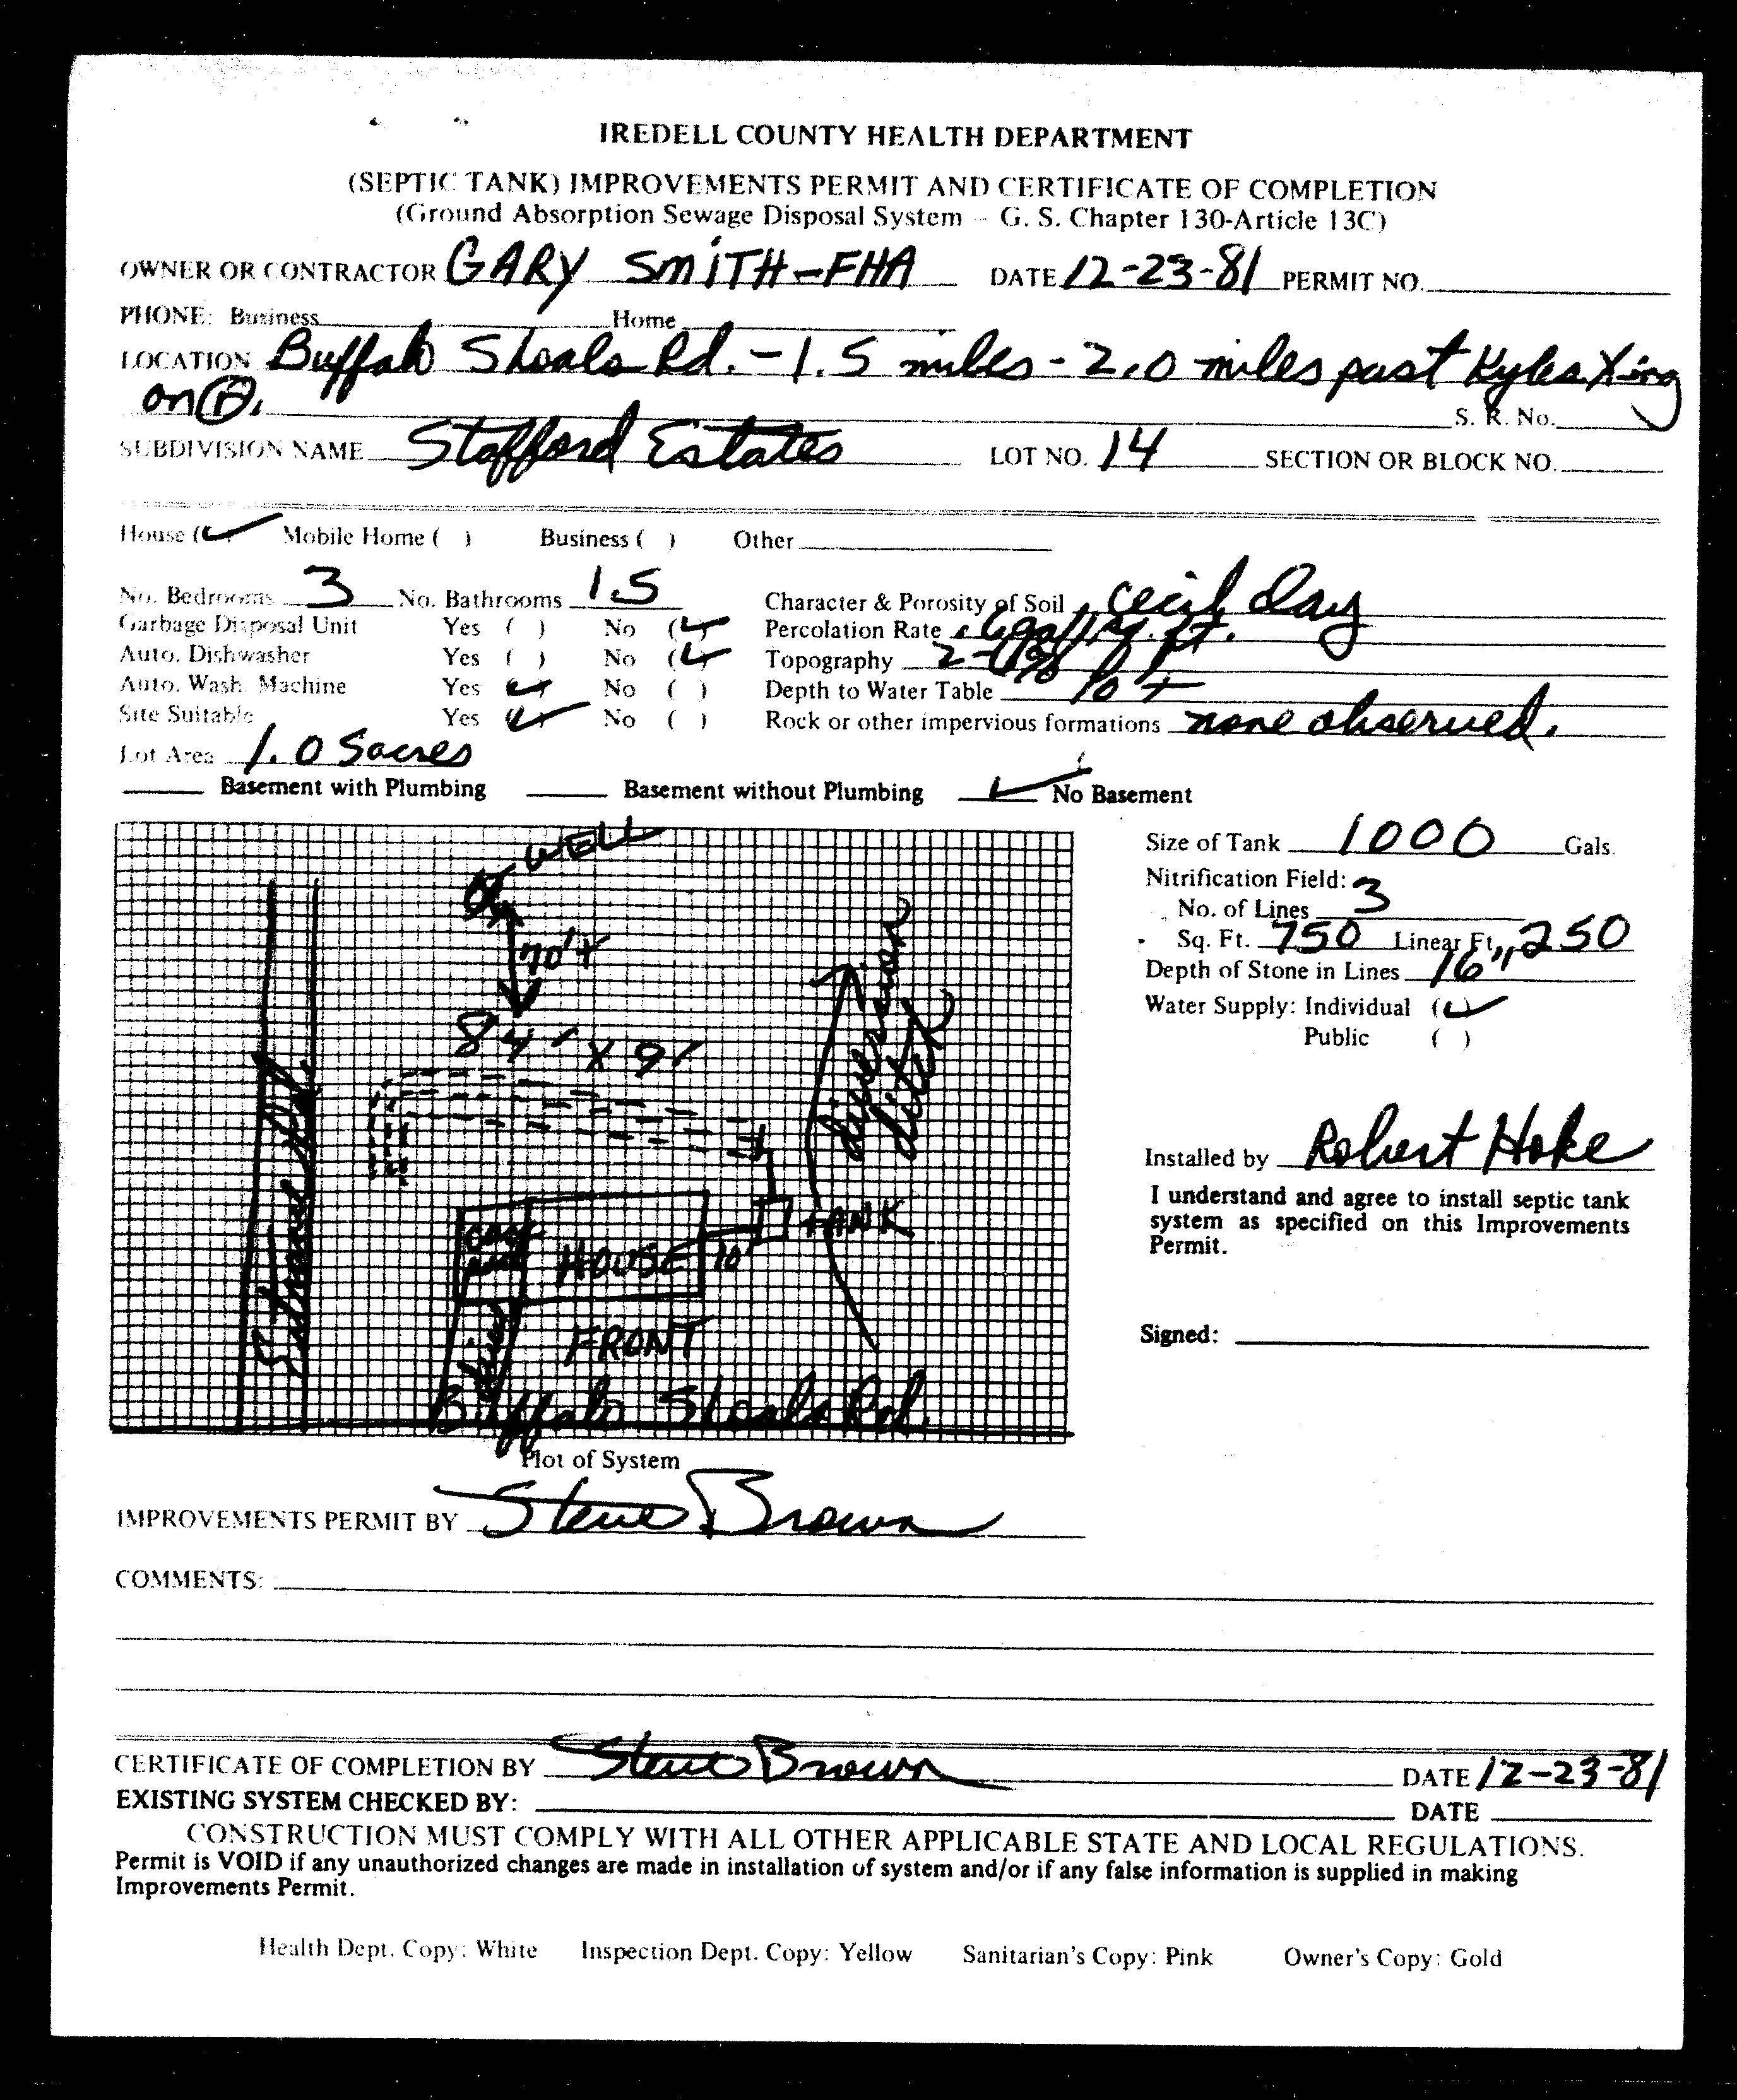 IREDELL COUNTY HEALTH DEPARTMENT
(SEPTIC TANK) IMPROVEMENTS PERMIT AND CERTIFICATE OF COMPLETION
(Ground Absorption Sewage Disposal System - G. S. Chapter 130-Article 13C)
OWNER OR CONTRACTOR GARY SMITH-FHA DATE 12-23-81 PERMIT NO.
PHONE: Business Home
LOCATION Buffalo Shoals Rd. - 1.5 miles - 2.0 miles past Kyles Xing
on R. S. R. No.
SUBDIVISION NAME Stafford Estates LOT NO. 14 SECTION OR BLOCK NO.
House (✓) Mobile Home ( ) Business ( ) Other
No. Bedrooms 3 No. Bathrooms 1.5 Character & Porosity of Soil Cecil Clay
Garbage Disposal Unit Yes ( ) No (✓) Percolation Rate .6 gal/sq. ft.
Auto. Dishwasher Yes ( ) No (✓) Topography 2-6%
Auto. Wash. Machine Yes (✓) No ( ) Depth to Water Table 10 +
Site Suitable Yes (✓) No ( ) Rock or other impervious formations none observed.
Lot Area 1.05 acres
Basement with Plumbing Basement without Plumbing ✓ No Basement
WELL
70'+
84' x 9'
diversion ditch
Entrance Rd.
TANK
HOUSE 10'
FRONT
Buffalo Shoals Rd.
Plot of System
Size of Tank 1000 Gals.
Nitrification Field:
No. of Lines 3
Sq. Ft. 750 Linear Ft. 250
Depth of Stone in Lines 16"
Water Supply: Individual (✓)
Public ( )
Installed by Robert Hoke
I understand and agree to install septic tank
system as specified on this Improvements
Permit.
Signed:
IMPROVEMENTS PERMIT BY Steve Brown
COMMENTS:
CERTIFICATE OF COMPLETION BY Steve Brown DATE 12-23-81
EXISTING SYSTEM CHECKED BY: DATE
CONSTRUCTION MUST COMPLY WITH ALL OTHER APPLICABLE STATE AND LOCAL REGULATIONS.
Permit is VOID if any unauthorized changes are made in installation of system and/or if any false information is supplied in making
Improvements Permit.
Health Dept. Copy: White Inspection Dept. Copy: Yellow Sanitarian's Copy: Pink Owner's Copy: Gold